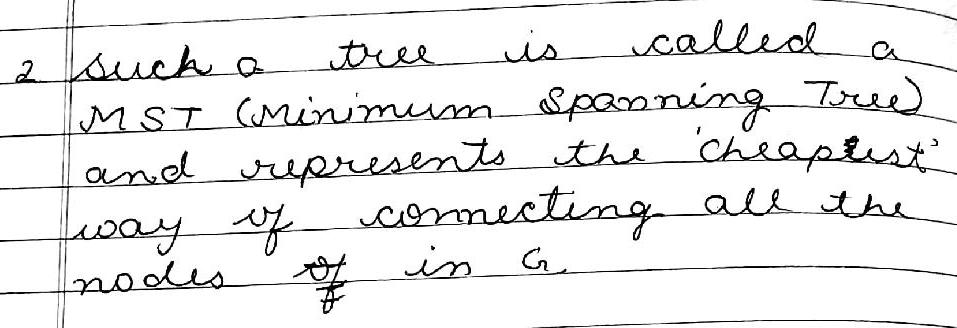 2 Such a tree is called a
MST (Minimum Spanning Tree)
and represents the 'cheapest'
way of connecting all the
nodes in G